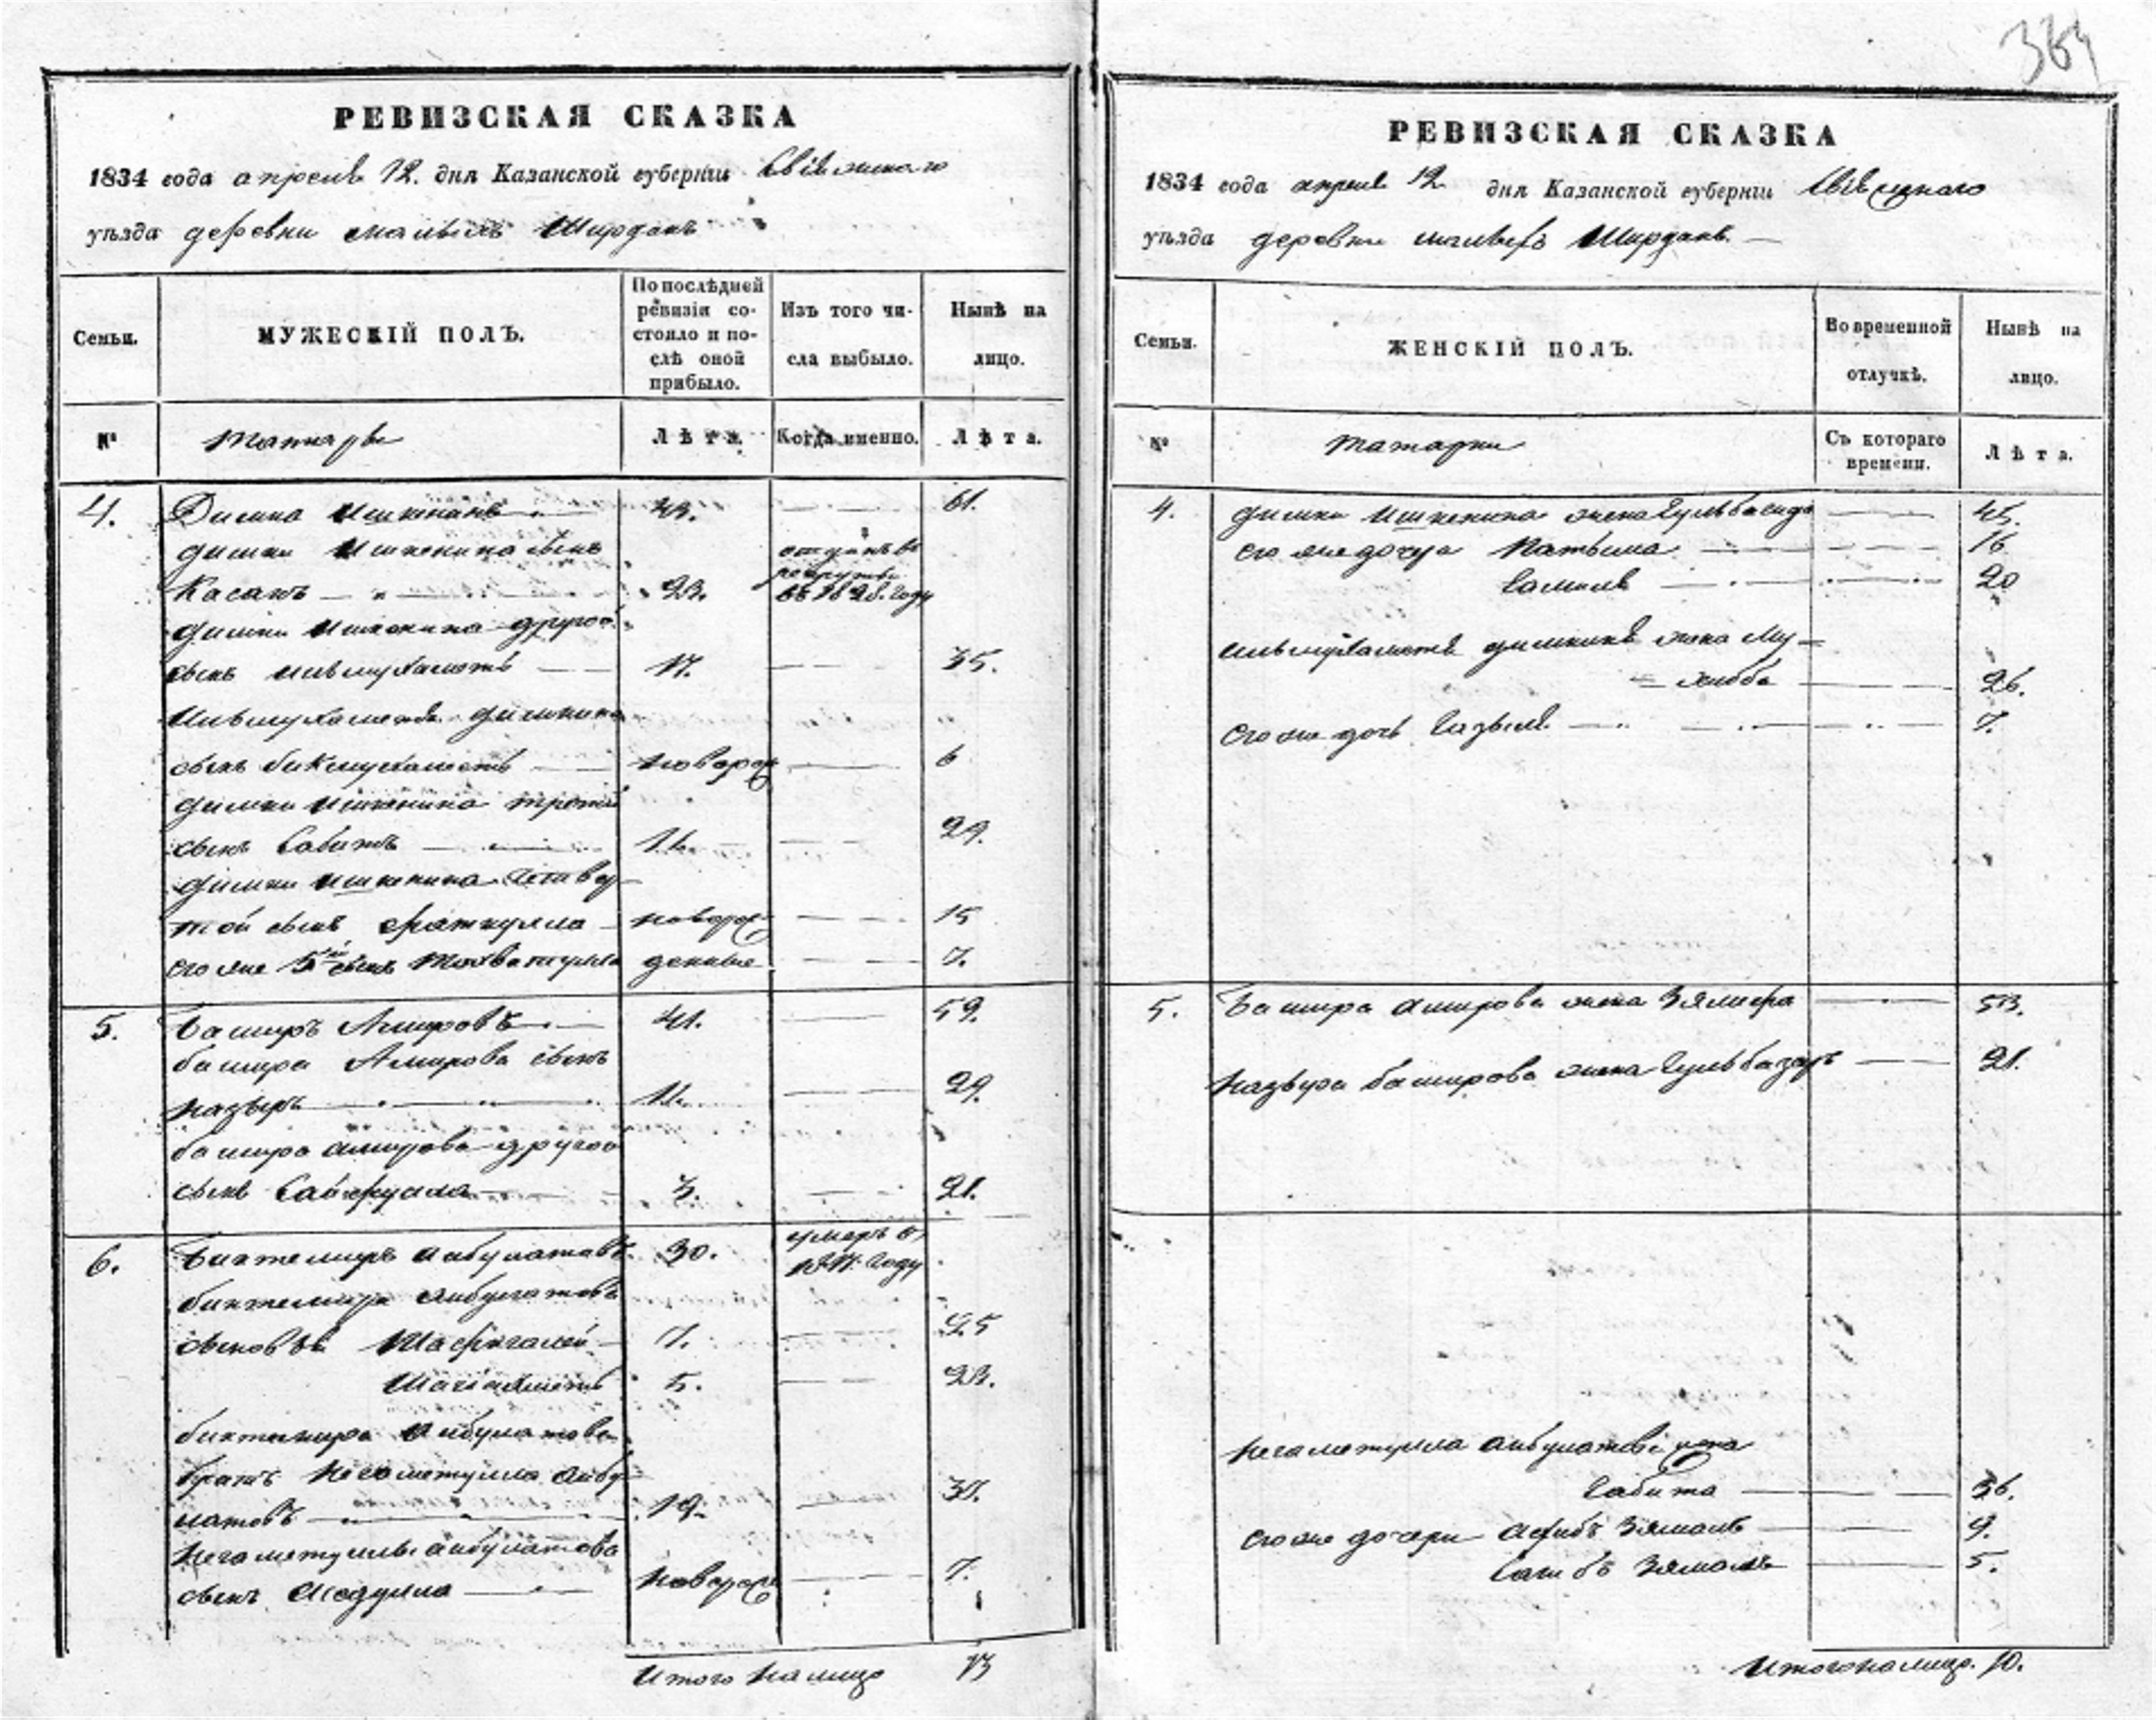 364
РЕВИЗСКАЯ СКАЗКА
1834 года апреля 12. дня Казанской губернии Свіяжскаго
уѣзда деревни малыхъ Ширданъ
Семьи.
МУЖЕСКІЙ ПОЛЪ.
По послѣдней ревизіи со-
стояло и по-
слѣ оной
прибыло.
Изъ того чи-
сла выбыло.
Нынѣ на
лицо.
№
Татары
Лѣта.
Когда именно.
Лѣта.
4. Димка Ишкенинъ 43. 61.
димки Ишкенина сынъ отданъ въ
рекруты
Касанъ 23. въ 1828. году
димки Ишкенина другой
сынъ Ишмухаметъ 17. 35.
Ишмухаметя димкина
сынъ бикмухаметъ новорож 6
димки Ишкенина третій
сынъ Сабитъ 11. 29.
димки Ишкенина четвер
той сынъ Фаткулла новорож 15
его же 5й сынъ денные 7.
5. Баширъ Амировъ 41. 59.
башира Амирова сынъ
Назыръ 11. 29.
башира амирова другой
сынъ Сайфулла 3. 21.
6. Биктемиръ Аибулатовъ 30. умеръ въ
году
биктемира Аибулатова
сыновья Шафигалей 7. 25
Шагіахметъ 5. 23.
биктемира Аибулатова
братъ Негаметулла Аибу
латовъ 19. 37.
Негаметуллы аибулатова
сынъ новорож 7.
Итого на лицо 13
РЕВИЗСКАЯ СКАЗКА
1834 года апреля 12 дня Казанской губерніи Свіяжскаго
уѣзда деревни малыхъ Ширданъ.
Семьи.
ЖЕНСКІЙ ПОЛЪ.
Во временной
отлучкѣ.
Нынѣ на
лицо.
№
Татарки
Съ котораго
времени.
Лѣта.
4. димки Ишкенина жена Гульбасида 45.
его же дочери Фатыма 16
Камиля 20
Ишмухаметя димкина жена Му=
=хиба 26.
его же дочь 7.
5. Башира амирова жена Зямфра 53.
Назыра баширова жена Гульбазаръ 21.
Негаметулла аибулатова жена
Габита 36.
его же дочери Афибъ Зямалъ 9.
Сагибъ Зямалъ 5.
Итого на лицо. 10.